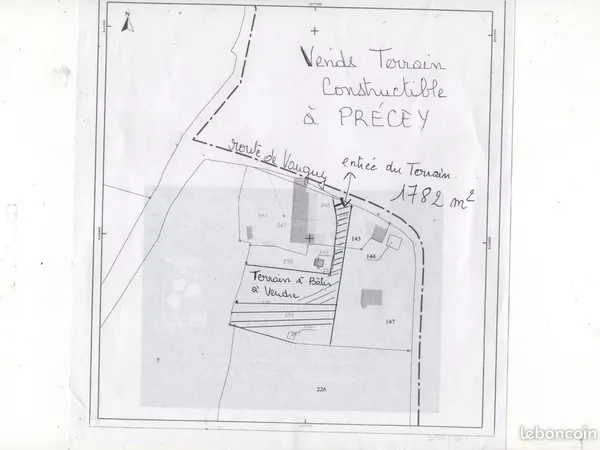 N
Vends Terrain
Constructible
à PRÉCEY
route de
entrée du Terrain.
1782 m²
248
247
143
144
250
Terrain à Bâtir
à Vendre
251
147
7
226
leboncoin